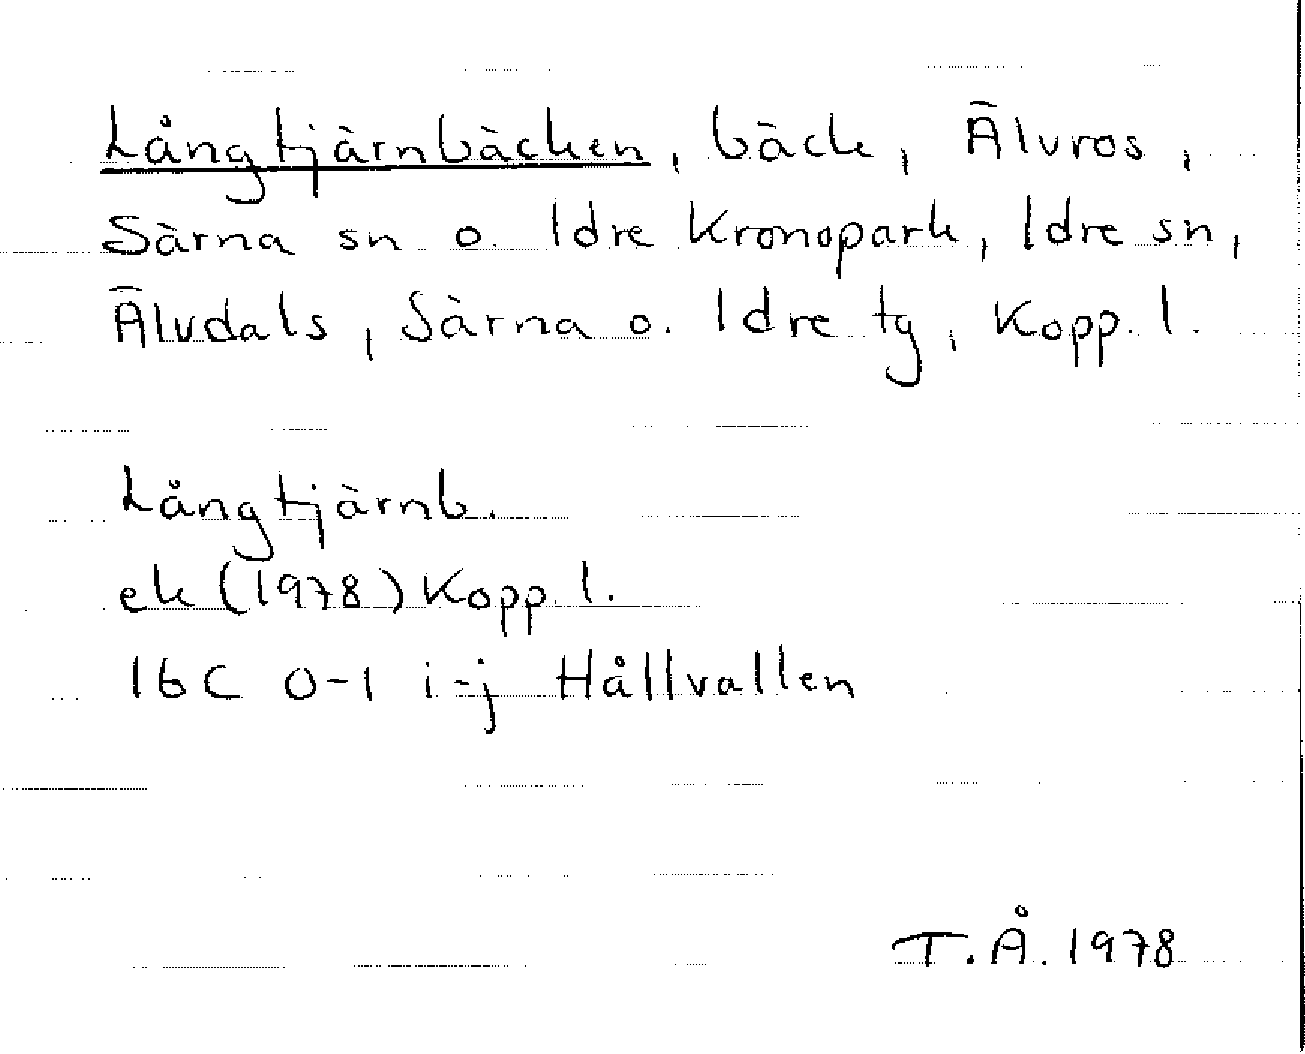 Långtjärnbäcken, bäck, Älvros,
Särna sn o. Idre Kronopark, Idre sn,
Älvdals, Särna o. Idre tg, Kopp. l.
Långtjärnb.
ek (1978) Kopp. l.
16C 0-1 i-j Hållvallen
T.Å. 1978